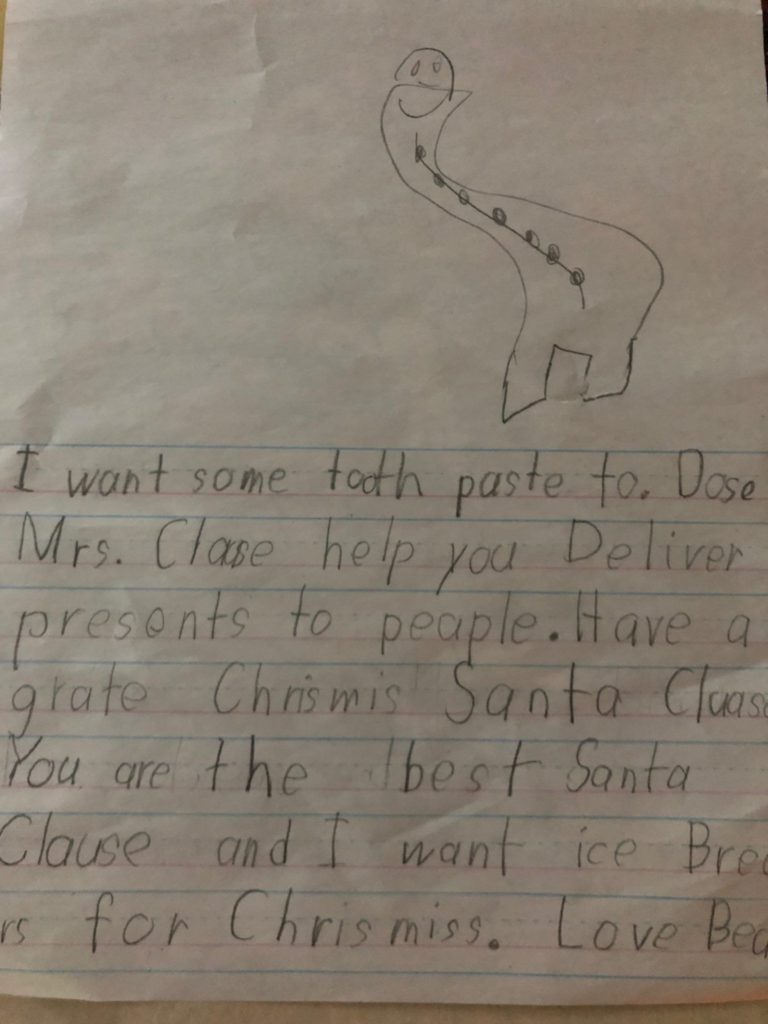 I want some tooth paste to. Dose
Mrs. Clase help you Deliver
presents to peaple. Have a
grate Chrismis Santa Claase
You are the best Santa
Clause and I want ice Brea
rs for Chrismiss. Love Bea